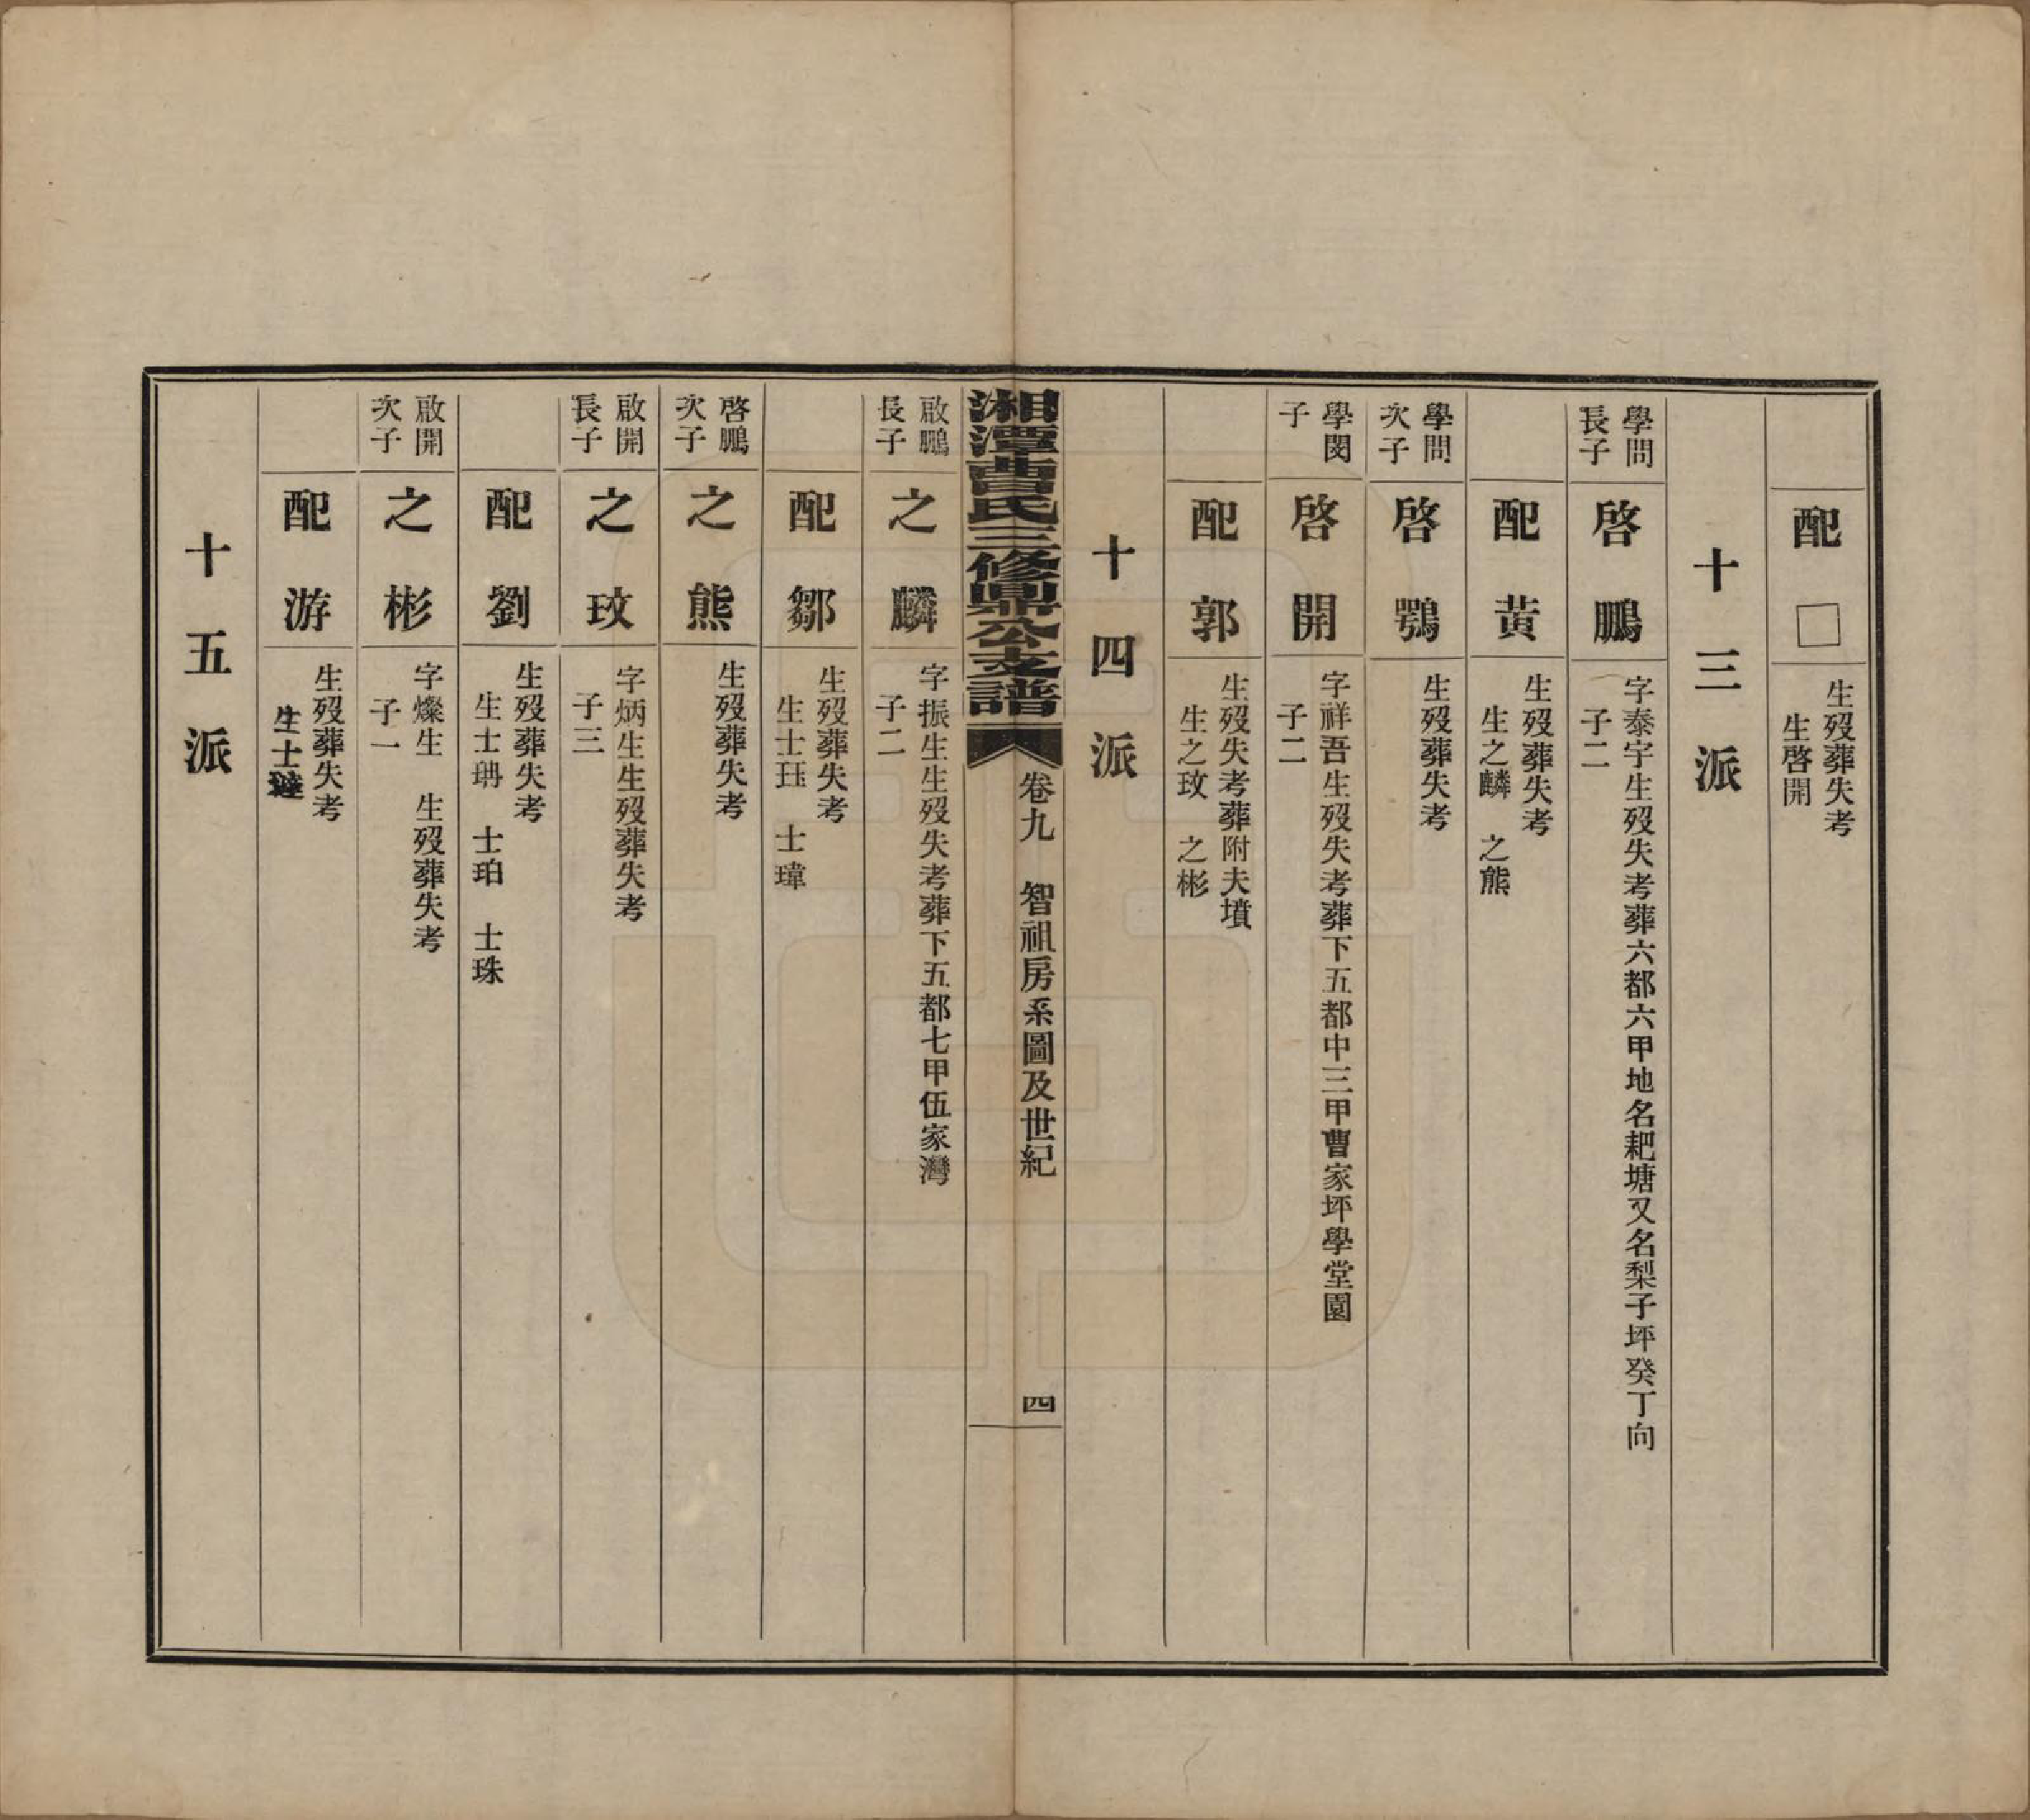 配□
生歿葬失考
生啓開
十三派
學問
長子
啓鵬
字泰宇生歿失考葬六都六甲地名耙塘又名梨子坪癸丁向
子二
配黄
生歿葬失考
生之麟 之熊
學問
次子
啓鶚
生歿葬失考
學閔
子
啓開
字祥吾生歿失考葬下五都中三甲曹家坪學堂園
子二
配郭
生歿失考葬附夫墳
生之玫 之彬
十四派
湘潭曹氏三修鼎公支譜
卷九 智祖房系圖及世紀
四
啟鵬
長子
之麟
字振生生歿失考葬下五都七甲伍家灣
子二
配鄒
生歿葬失考
生士玨 士瑋
啓鵬
次子
之熊
生歿葬失考
啟開
長子
之玟
字炳生生歿葬失考
子三
配劉
生歿葬失考
生士珃 士珀 士珠
啟開
次子
之彬
字燦生 生歿葬失考
子一
配游
生歿葬失考
生士
十五派